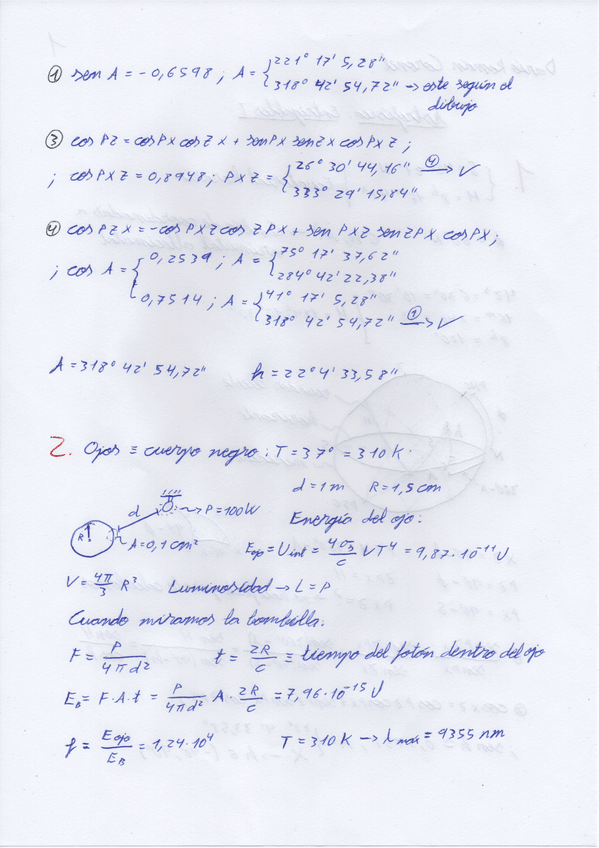 ① sen A = -0,6598 ; A = { 221° 17' 5,28"
318° 42' 54,72" → este según el dibujo
③ cos PZ = cos PX cos ZX + sen PX sen ZX cos PXZ ;
; cos PXZ = 0,8948 ; PXZ = { 26° 30' 44,16" ④→ √
333° 29' 15,84"
④ cos PZX = -cos PXZ cos ZPX + sen PXZ sen ZPX cos PX ;
; cos A = { 0,2539 ; A = { 75° 17' 37,62"
284° 42' 22,38"
0,7514 ; A = { 41° 17' 5,28"
318° 42' 54,72" ①→ √
A = 318° 42' 54,72" h = 22° 4' 33,58"
2. Ojos ≡ cuerpo negro : T = 37° = 310 K.
d = 1 m R = 1,5 cm
d → P = 100 W
Energía del ojo:
R A = 0,1 cm²
E_ojo = U_int = 4σ/c V T⁴ = 9,87 · 10⁻¹¹ J
V = 4π/3 R³ Luminosidad → L = P
Cuando miramos la bombilla:
F = P/4πd² t = 2R/c ≡ tiempo del fotón dentro del ojo
E_B = F · A · t = P/4πd² A · 2R/c = 7,96 · 10⁻¹⁵ J
f = E_ojo/E_B = 1,24 · 10⁴ T = 310 K → λ_max = 9355 nm